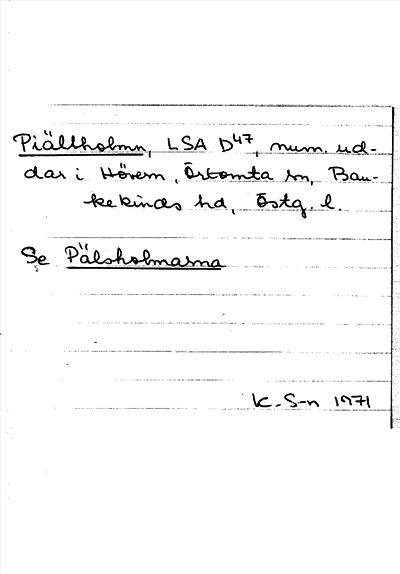 Piältholmn, LSA D47, num. ud-
dar i Hövern, Örtomta sn, Ban-
kekinds hd, Östg. l.
Se Pälsholmarna
K. S-n 1971